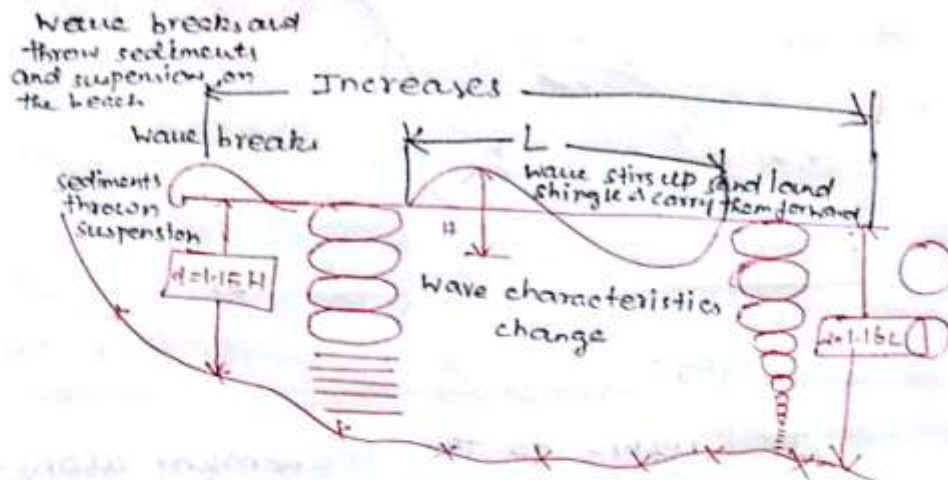 wave breaks and
throw sediments
and suspension on
the beach
Increases
wave breaks
L
wave stirs up sand land
shingle & carry them forward
sediments
thrown
suspension
H
d=1.15 H
wave characteristics
change